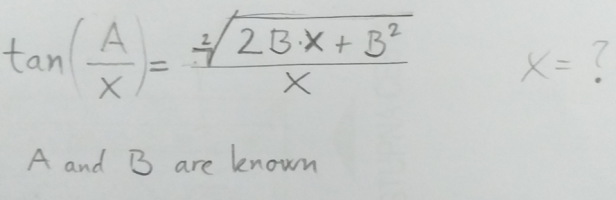 tan(A/x) = ²√(2B·x + B²)/x x = ?
A and B are known